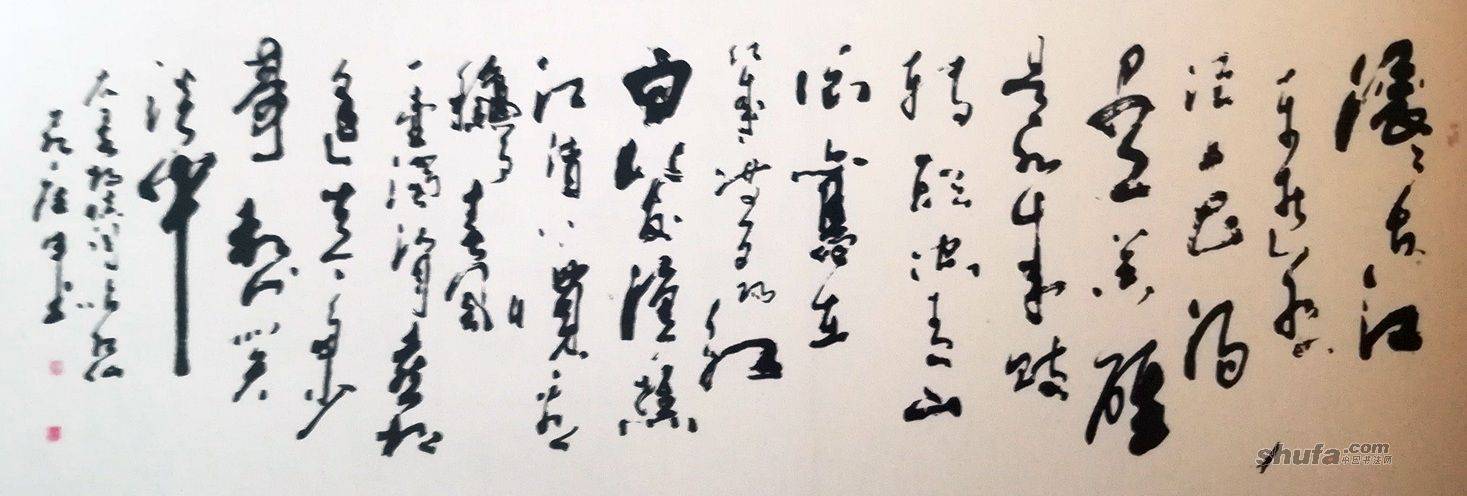 滚々长江
东逝水
浪花淘
尽英雄
是非成败
转头空青山
依舊在
几度夕阳红
白发渔樵
江渚上惯看
秋月春风
一壶浊酒喜相
逢古今多少
事都付笑
谈中
杨慎词临江仙
书
shufa.com
中国书法网